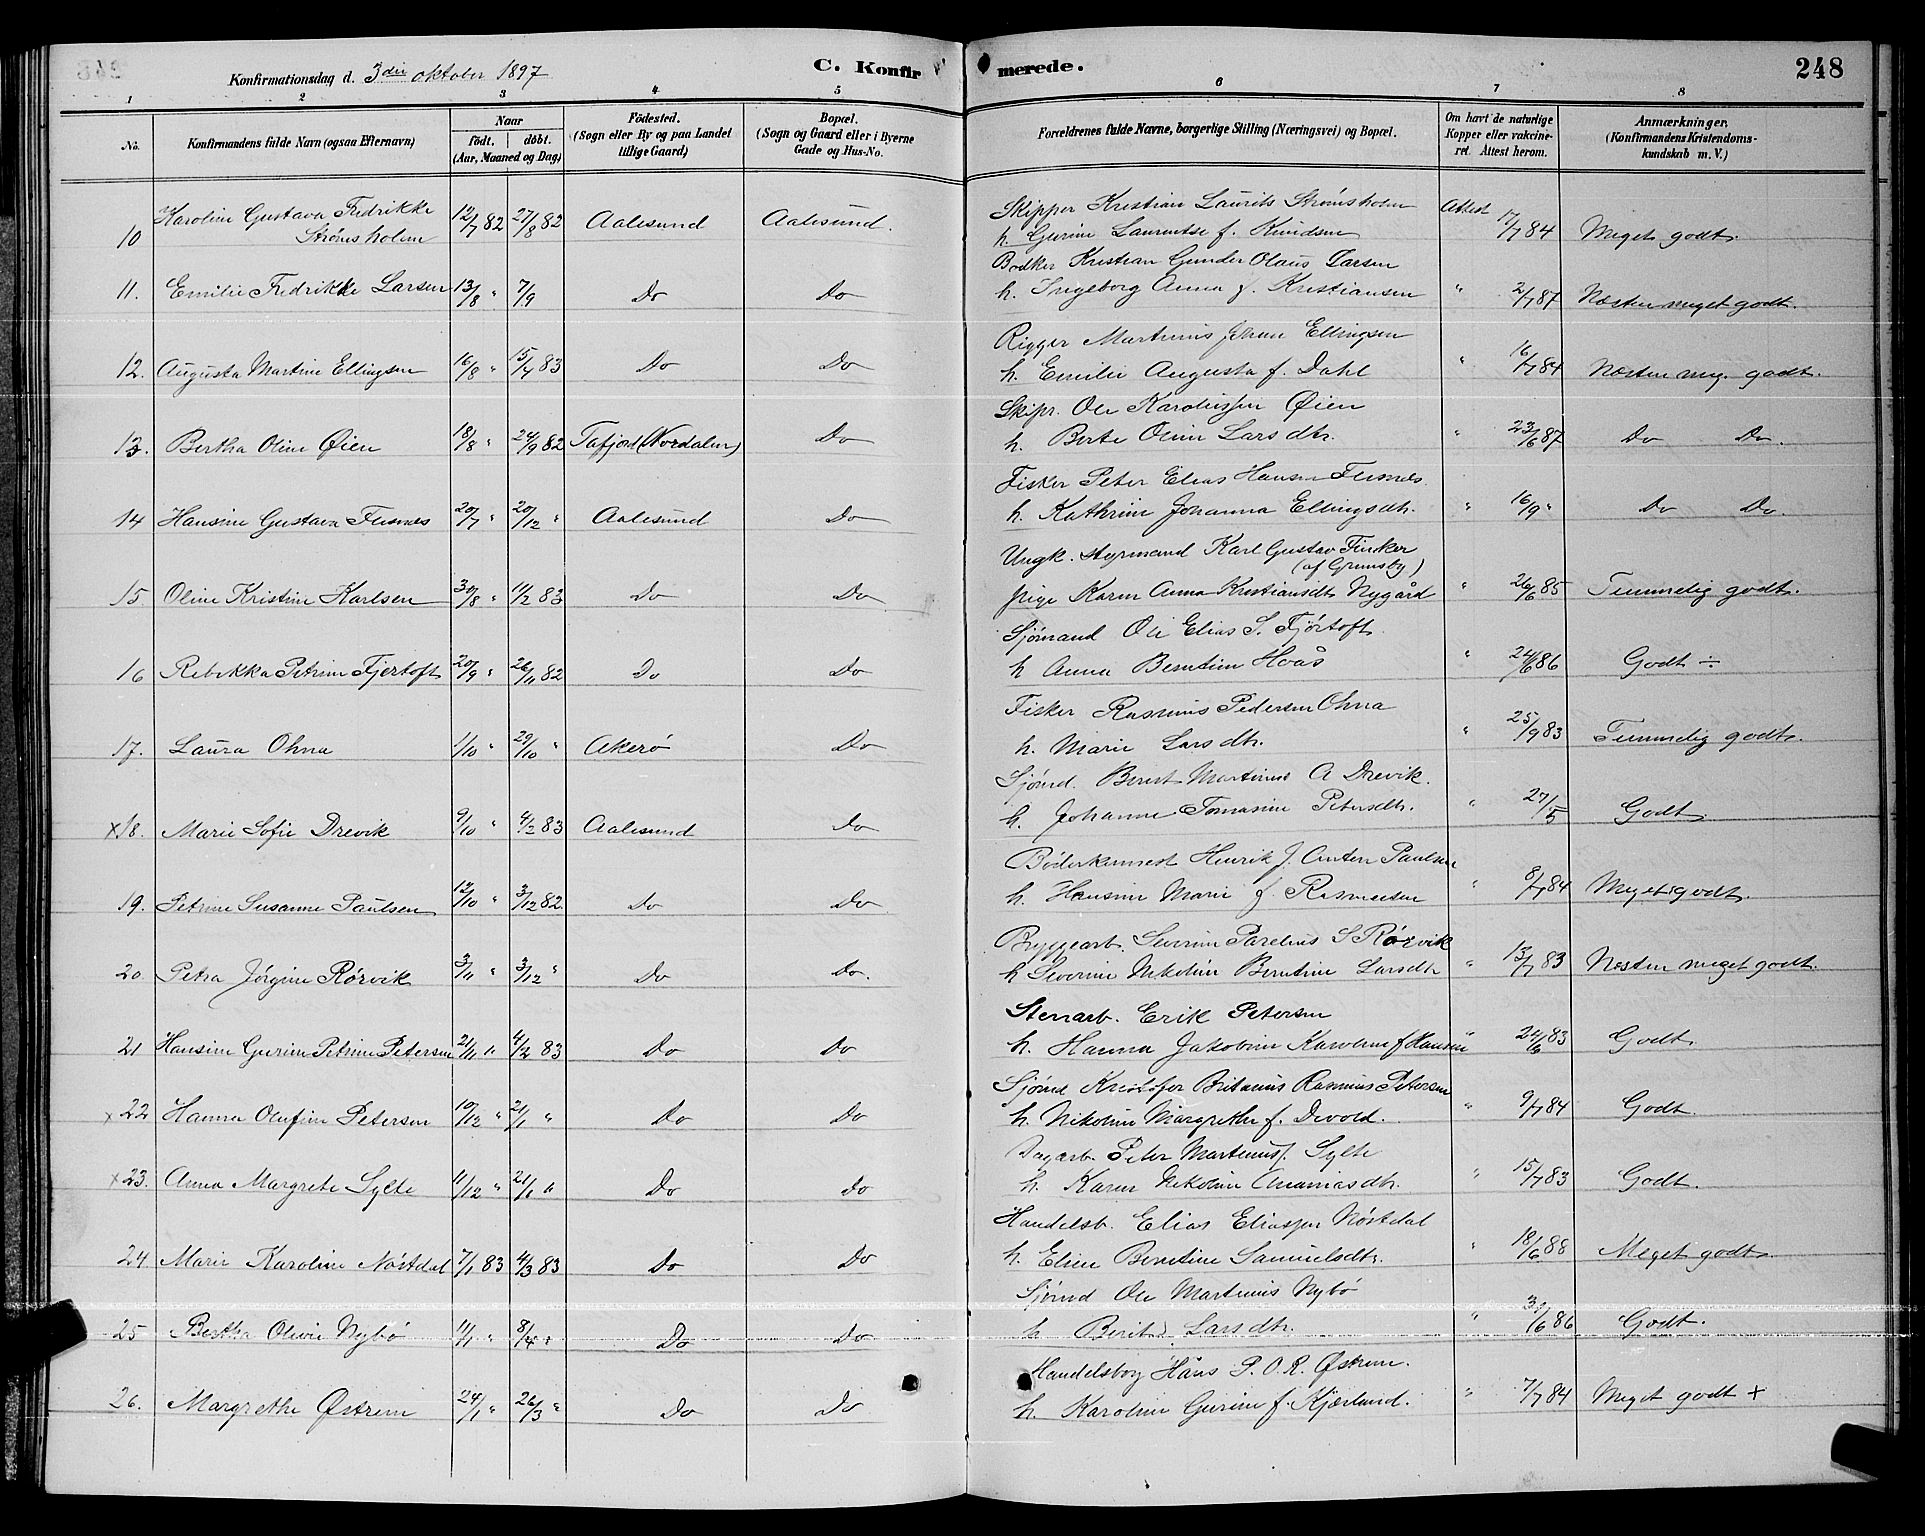 Konfirmationsdag d. 3die oktober 1897
C. Konfirmerede.
248
1 2 3 4 5 6 7 8
No. Konfirmandens fulde Navn (ogsaa Efternavn) Naar født. døbt. (Aar, Maaned og Dag) Fødested. (Sogn eller By og paa Landet tillige Gaard) Bopæl. (Sogn og Gaard eller i Byerne Gade og Hus-No. Forældrenes fulde Navne, borgerlige Stilling (Næringsvei) og Bopæl. Om havt de naturlige Kopper eller vakcineret. Attest herom. Anmærkninger. (Konfirmandens Kristendomskundskab m. V.)
Karoline Gustava Fredrikke 12/7 82 27/8 82 Aalesund Aalesund. Skipper Kristian Laurits Strømsholm Attest
10 Strømsholm h. Gurine Laurentse f. Knudsen 17/7 84 Meget godt.
Bødker Kristian Gunder Olaus Larsen
11. Emilie Fredrikke Larsen 13/8 " 7/9 Do Do h. Ingeborg Anna f. Kristiansen " 2/7 87 Næsten meget godt.
Rigger Martinus Johan Ellingsen
12. Augusta Martine Ellingsen 16/8 " 15/4 83 Do Do h. Emilie Augusta f. Dahl " 16/7 84 Næsten meg. godt.
Skipr. Ole Karoliussen Øien
13. Bertha Oline Øien 18/8 " 24/9 82 Tafjord (Nordalen) Do h. Berte Oline Larsdtr. " 23/6 87 Do Do.
Fisker Peter Elias Hansen Fusnes
14 Hansine Gustava Fusnes 20/7 " 20/12 " Aalesund Do h. Kathrine Johanna Ellingsdtr. " 16/9 " Do Do.
Ungk. styrmand Karl Gustav Finker
(af Grimsby)
15. Oline Kristine Karlsen 30/8 " 11/2 83 Do Do. Pige Karen Anna Kristiansdtr Nygård " 26/6 85 Temmelig godt.
Sjømand Ole Elias S. Fjørtoft.
16 Rebekka Petrine Fjertoft 20/9 " 26/11 82 Do Do h Anna Berntine Hoås " 24/6 86 Godt ÷
Fisker Rasmus Pedersen Ohna
17. Laura Ohna 1/10 " 29/10 " Akerø Do h. Marie Larsdtr. " 25/9 83 Temmelig godt.
Sjømd. Bernt Martinus A Drevik.
x18. Marie Sofie Drevik 9/10 " 4/2 83 Aalesund Do h. Johanne Tomasine Petersdtr. " 27/5 Godt
Bødkermest Henrik J. Anton Paulsen
19. Petrine Susanne Paulsen 12/10 " 3/12 82. Do Do. h. Hansine Marie f Rasmussen " 8/7 84 Meget godt.
Byggearb. Severin Parelius S Rørvik
20. Petra Jørgine Rørvik 3/11 " 3/12 " Do Do. h Severine Nikoline Berntine Larsdtr " 13/7 83 Næsten meget godt.
Stenarb. Erik Petersen
21 Hansine Gurine Petrine Petersen 21/11 " 4/2 83 Do Do h. Hanna Jakobine Karoline f Hansen " 24/6 83 Godt.
Sjømd Kristofer Britanus Rasmus Petersen
x22 Hanna Olufine Petersen 10/12 " 21/1 " Do Do h. Nikoline Margrethe f. Devold. " 9/7 84 Godt.
Dagarb. Peter Martinus J. Sylte
x23. Anna Margrete Sylte 11/12 " 21/1 " Do Do h. Karen Nikoline Ananiasdtr. " 15/7 83 Godt.
Handelsb. Elias Eliassen Nøstdal
24 Marie Karoline Nøstdal 7/1 83 4/3 83 Do Do h. Eline Berntine Samuelsdtr. " 18/6 88 Meget godt.
Sjømd Ole Martinus Nybø
25 Bertha Olivie Nybø 11/1 " 8/4 " Do Do h Berit Larsdtr. " 30/6 86 Godt.
Handelsborg Hans P. O. R. Østrem.
26. Margrethe Østrem 24/1 " 26/3 " Do Do h. Karoline Gurine f. Kjærlund. " 7/7 84 Meget godt x